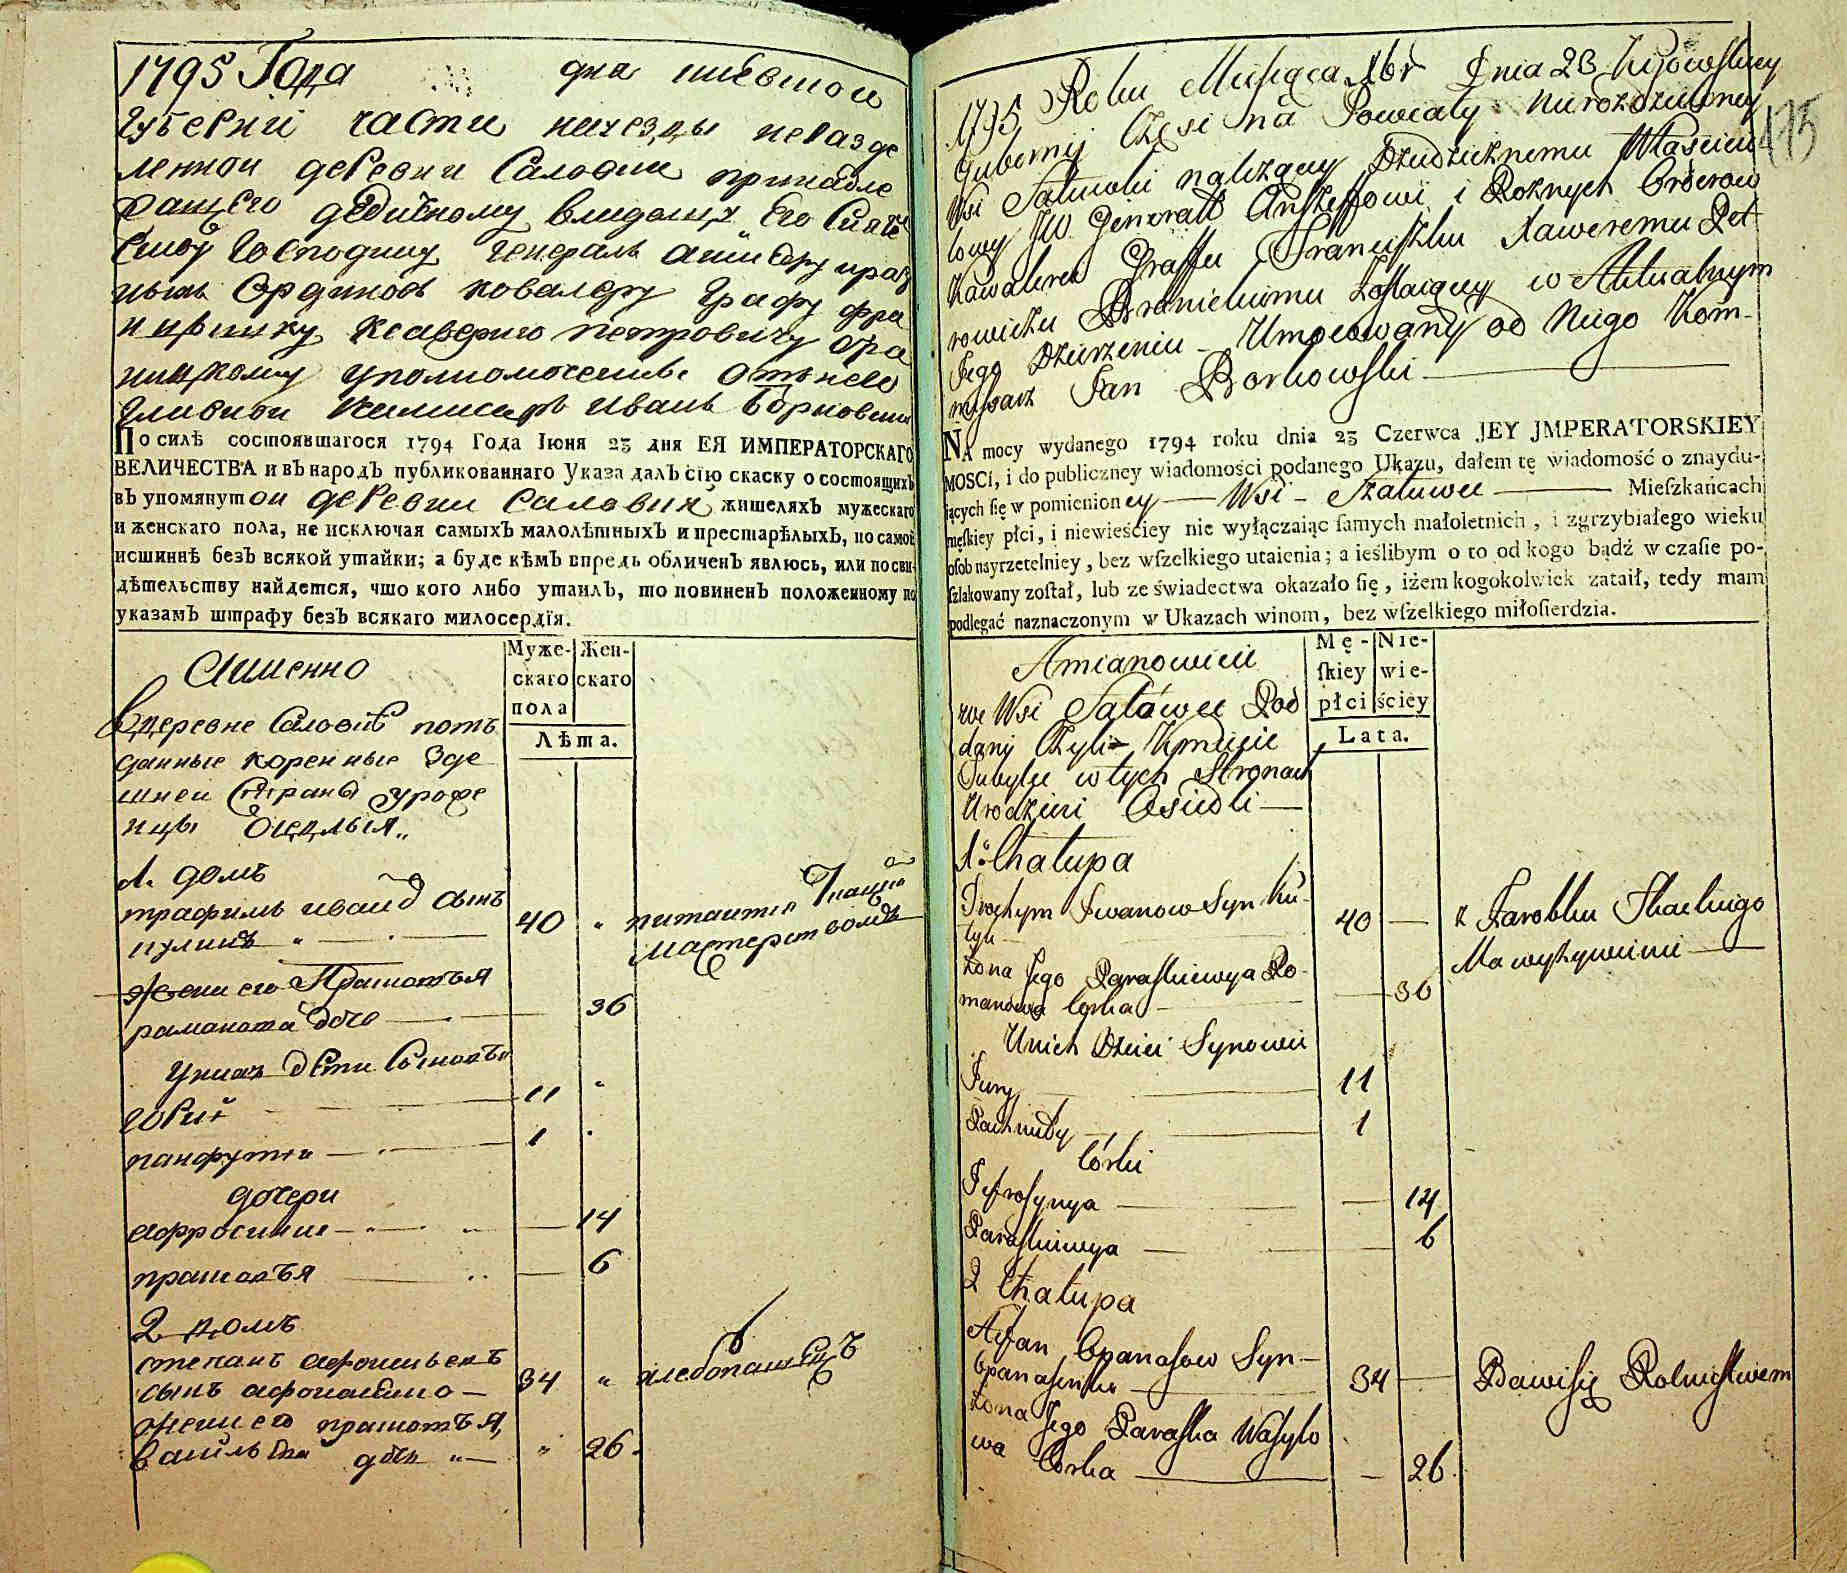 1795 Года дня киевской
Губернiи части науезды неразде
ленной деревни Саловки принадле
жащего дедичному владельцу Его Сиятел
Господину Генераль аншефу и раз
ныхъ Ординовъ ковалеру Графу Фра
Ксаверию Петровичу Бра
ницкому уполномоченны отънего
Главной Камисаръ Иванъ Борковски
По силѣ состоявшагося 1794 Года Iюня 23 дня ЕЯ ИМПЕРАТОРСКАГО
ВЕЛИЧЕСТВА и вѣ народѣ публикованнаго Указа далѣ сiю скаску о состоящихѣ
вѣ упомянутой деревни Саловки жителяхѣ мужескаго
и женскаго пола, не исключая самыхѣ малолѣтныхѣ и престарѣлыхѣ, по самой
истиннѣ безѣ всякой утайки; а буде кѣмѣ впредь обличенѣ явлюсь, или по сви-
дѣтельству найдется, что кого либо утаилѣ, то повиненѣ положенному по
указамѣ штрафу безѣ всякаго милосердiя.
Аименно
Муже-
скаго
пола
Жен-
скаго
Лѣта.
Вдеревне Саловке подъ
данные коренные Зде
шней Страны уроже
нцы
1. домъ
трафимъ сынъ
40 питаится
мастерствомъ
жена его Прасковъя
раманова дочь 36
Унихъ дети Сыновъя
11
панфутии 1
дочери
афросиния 14
прасковъя 6
2 домъ
степанъ афонасьевъ
сынъ 34 хлебопашецъ
жена его прасковъя
васильева дочь 26
1795 Roku Miesiąca Xbr Dnia 23 Kijowskiey
Gubernij Części na Powiaty nierozdzieloney
Wsi Saluwki nalezący Dziedzicznemu Właścicie
lowy JW Generałł Anszeffowi i Roznych Orderow
Kawalerū Graffu Franciszku Xaweremu Pet
rowiczu Branickiemu zostaiący w Aktualnym
Jego Dzierzeniu Umocowany od Niego Kom-
missarz Jan Borkowski
NA mocy wydanego 1794 roku dnia 23 Czerwca JEY JMPERATORSKIEY
MOSCI, i do publiczney wiadomości podanego Ukazu, dałem tę wiadomość o znaydu-
jących ſię w pomienioney Wsi Szaluwce Mieſzkańcach
męſkiey płci, i niewieściey nie wyłączaiąc ſamych małoletnich, i zgrzybiałego wieku
oſob nayrzetelniey, bez wſzelkiego utaienia; a ieślibym o to od kogo bądź w czaſie po-
ſzlakowany zoſtał, lub ze świadectwa okazało ſię, iżem kogokolwiek zataił, tedy mam
podlegać naznaczonym w Ukazach winom, bez wſzelkiego miłoſierdzia.
Amianowicie
Mę-
ſkiey
płci
Nie-
wie-
ściey
Lata.
we Wsi Saláwce Pod
dani Czyli Kmiecie
w tych Stronach
Urodzeni Osiedli
1º Chalupa
Trochym Iwanow Syn Ku
lyn 40 z Zarobku Tkackiego
Ma wyżywienie
Zona Jego Paraskiewya Ro
manowa Corka 36
Unich Dzieci Synowie
Jury 11
Pachnudy 1
Córki
Jefrosynya 14
Paraskiewya 6
2 Chalupa
Stefan Opanasow Syn
Opanasenko 34 Bawi się Rolnictwem
Zona Jego Paraska Wasylo
wa Corka 26